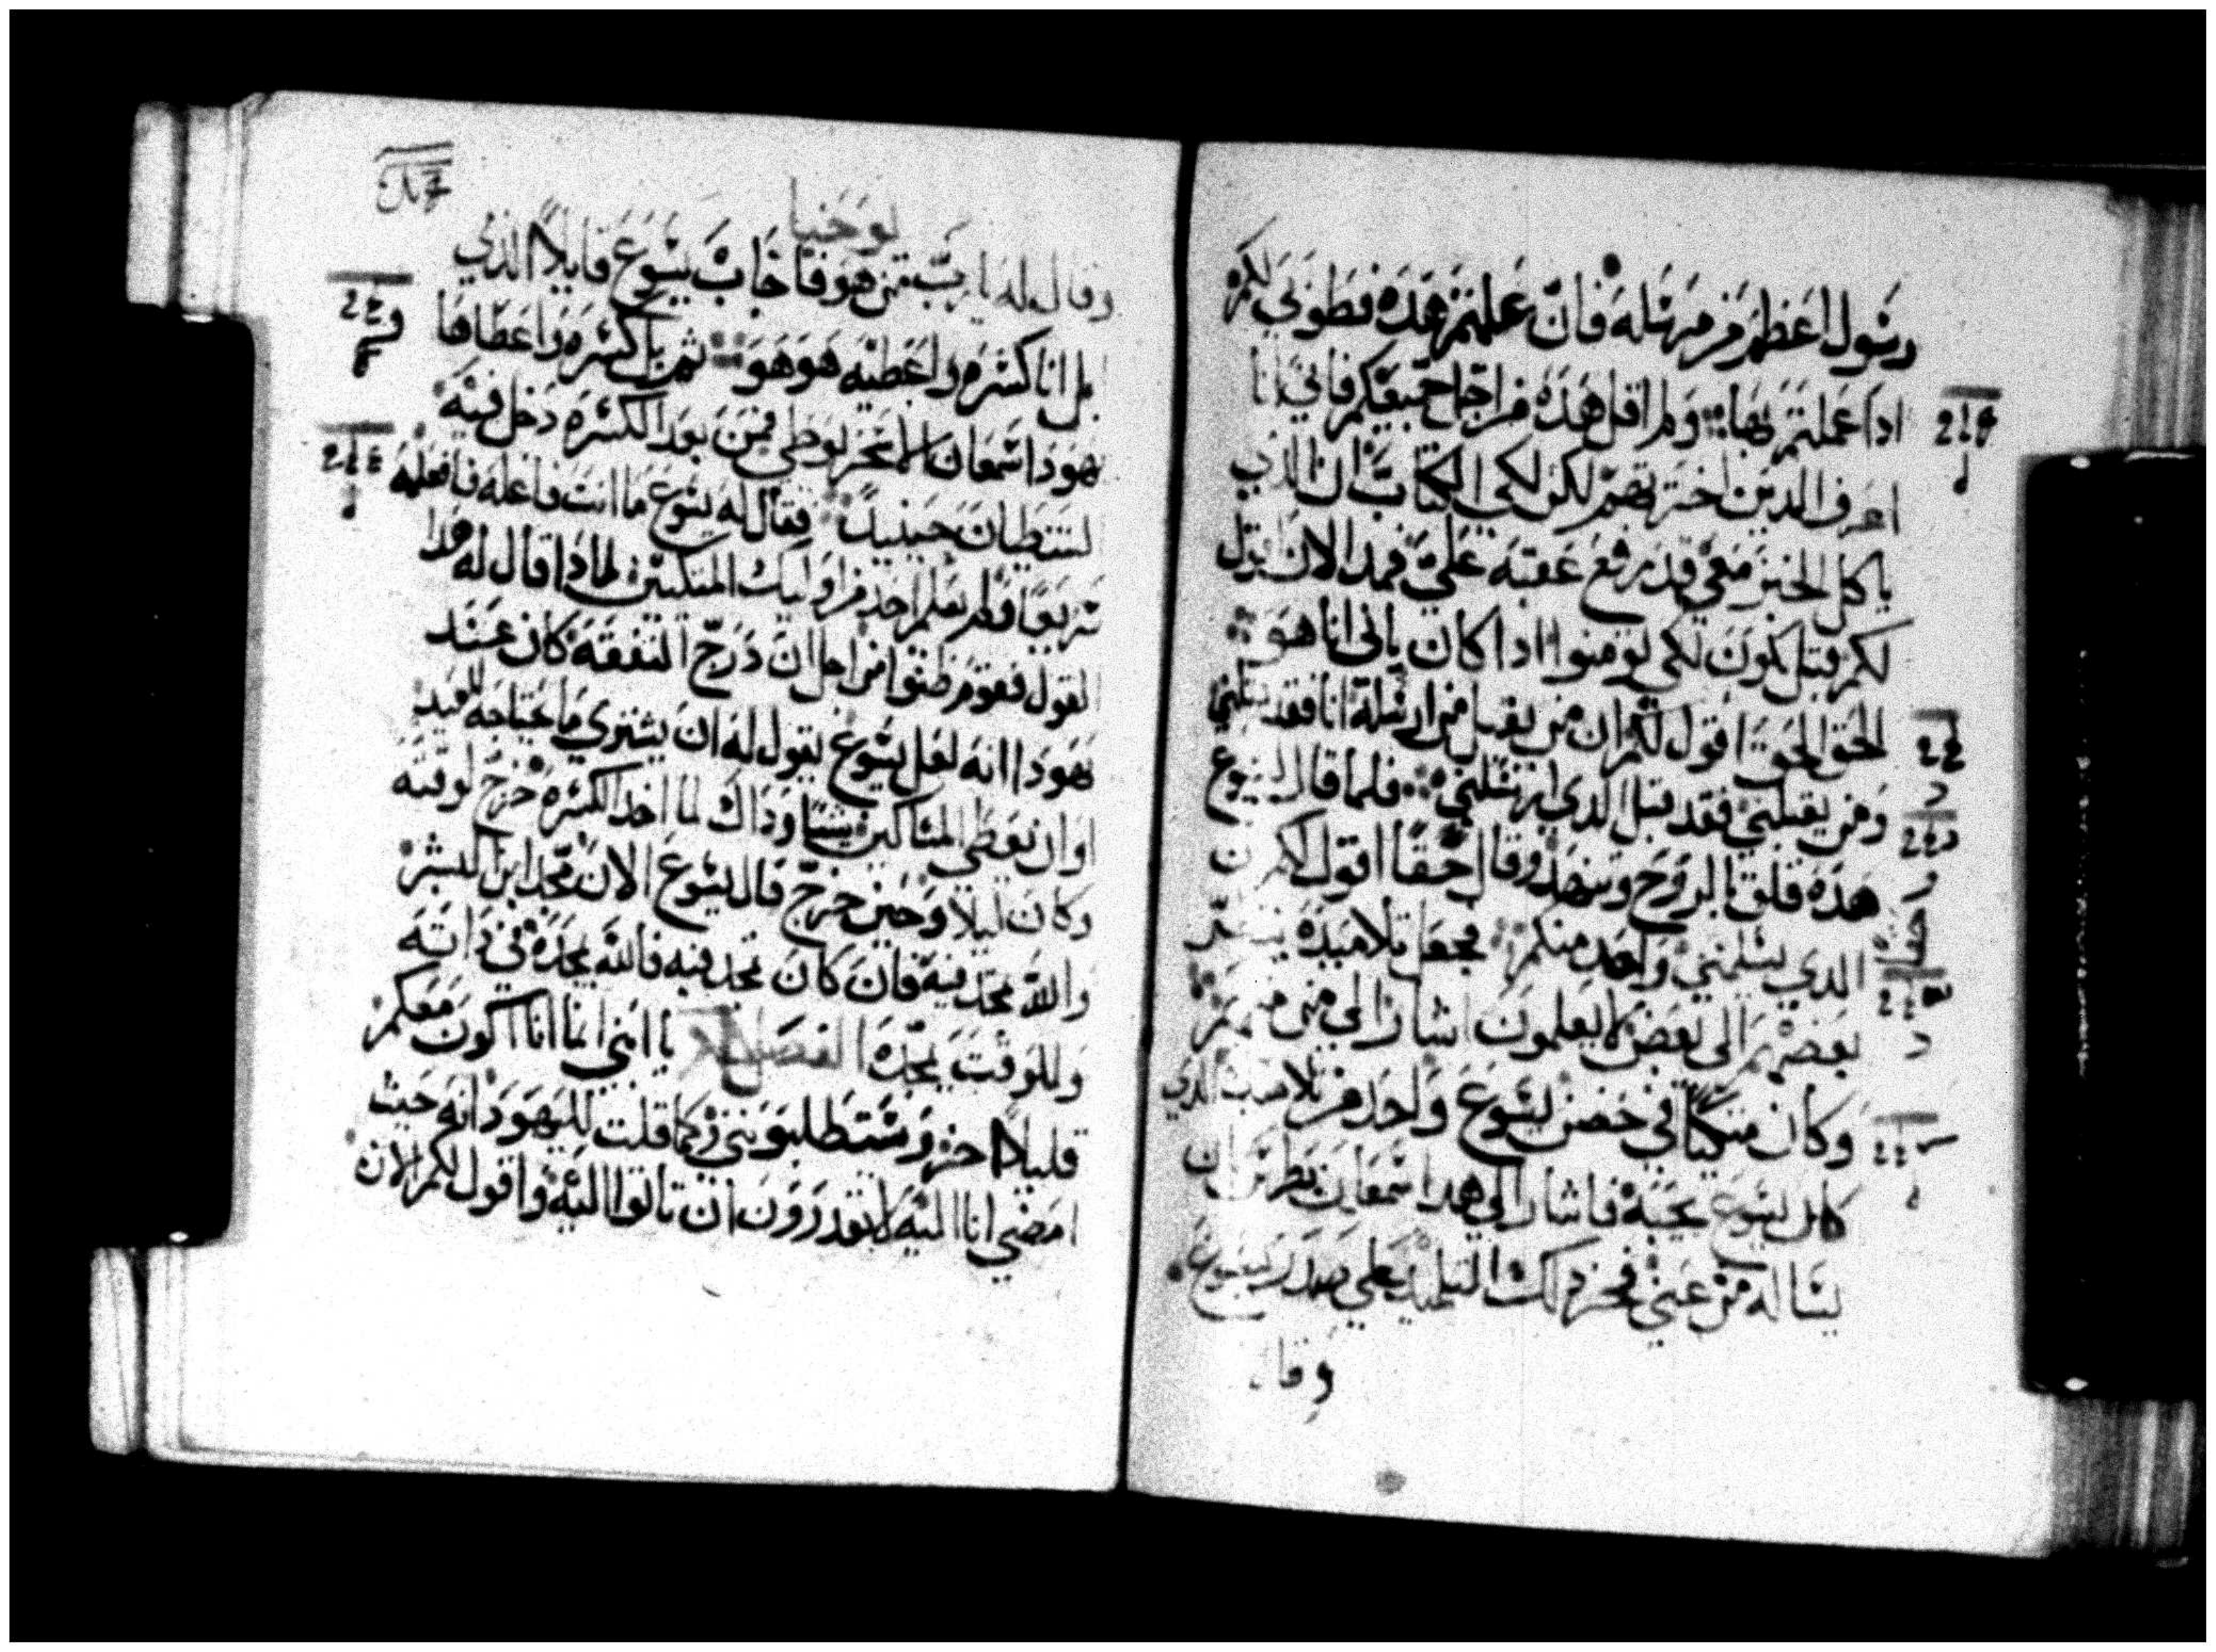 رسول اعظم من مرسله فان علمتم هذه فطوبي لكم
ادا عملتم بها ولم اقل هذه من اجل جميعكم فاني انا
اعرف الدين اخترتهم لكن لكي الكتاب ان الذي
ياكل الخبز معي قد رفع عقبه علي فمند الان اقول
لكم قبل يكون لكي تومنوا ادا كان باني انا هو
الحق الحق اقول لكم ان من يقبل من ارسله انا فقد قبلني
ومن يقبلني فقد قبل الدي ارسلني فلما قال يسوع
هذه قلق بالروح وشهد وقال حقا اقول لكم ان
الدي يسلمني واحد منكم فجعل تلاميده
بعضهم الى بعض لا يعلمون اشار الي من منهم
وكان متكيا في حضن يسوع واحد من تلاميده الدي
كان يسوع يحبه فاشار الي هدا سمعان بطرس ان
يساله من عني فخر دلك التلميد على صدر يسوع
وقال
يوحنا
وقال له يا رب من هو فاجاب يسوع قايلا الذي
بل انا كسره واعطيه هو هو ثم بل كسره واعطاها
يهودا سمعان الاسخريوطي فمن بعد الكسره دخل فيه
لشيطان حينيد فقال له يسوع ما انت فاعله فافعله
سريعا ولم يعلم احد من اوليك المتكيين لمادا قال له هدا
القول فقوم ظنوا من اجل ان درج النفقه كان عند
يهودا انه لعل يسوع يقول له ان يشتري ما يحتاجه للعيد
او ان يعطي المساكين شيا وداك لما اخد الكسره خرج لوقته
وكان ليلا وحين خرج قال يسوع الان مجد ابن البشر
والله مجد فيه فان كان مجد فيه فالله يمجده في داته
وللوقت يمجده الفصل يا ابني انما انا اكون معكم
قليلا اخر وستطلبونني وكما قلت لليهود انه حيث
امضي انا اليه لا تقدرون ان تاتوا اليه واقول لكم الان